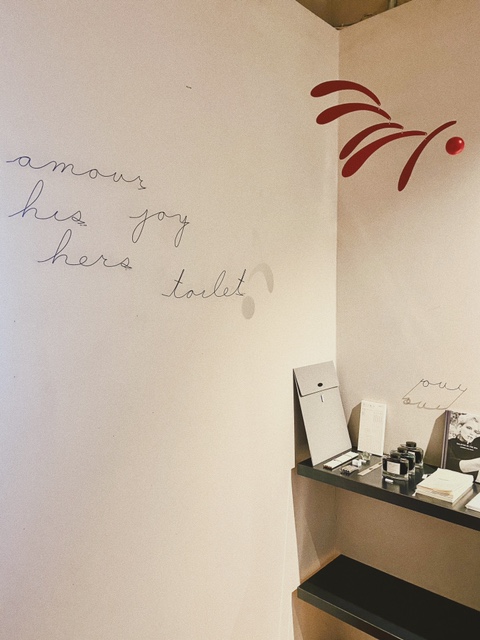 amour
his joy
hers
toilet